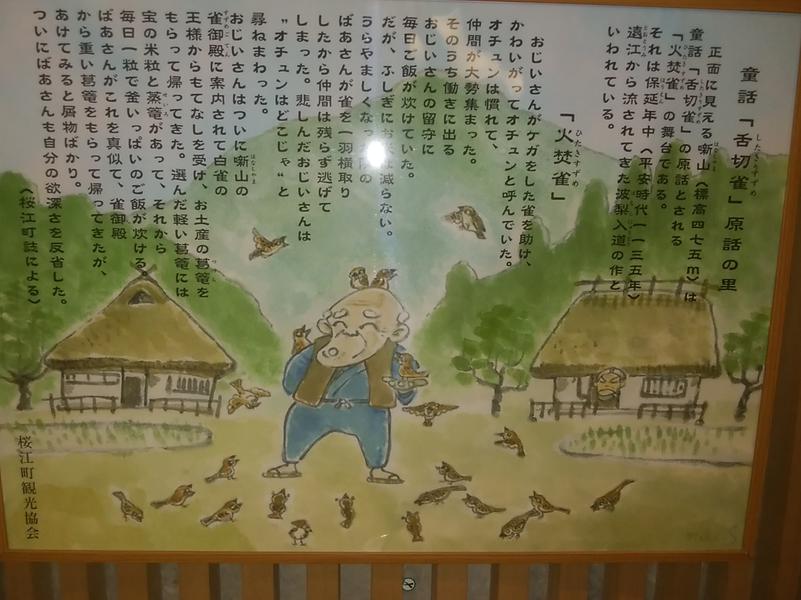 童話「舌切雀」原話の里
したきりすずめ
正面に見える噺山(標高四七五m)は
童話「舌切雀」の原話とされる
「火焚雀」の舞台である。
それは保延年中(平安時代一一三五年)
遠江から流されてきた波梨入道の作と
いわれている。
「火焚雀」
ひたきすずめ
おじいさんがケガをした雀を助け、
かわいがってオチュンと呼んでいた。
オチュンは慣れて、
仲間が大勢集まった。
そのうち働きに出る
おじいさんの留守に
毎日ご飯が炊けていた。
だが、ふしぎにお米は減らない。
うらやましくなった隣の
ばあさんが雀を一羽横取り
したから仲間は残らず逃げて
しまった。悲しんだおじいさんは
〝オチュンはどこじゃ〟と
尋ねまわった。
おじいさんはついに噺山の
はなしやま
雀御殿に案内されて白雀の
すずめごてん
王様からもてなしを受け、お土産の葛篭を
つづら
もらって帰ってきた。選んだ軽い葛篭には
宝の米粒と蒸篭があって、それから
毎日一粒で釜いっぱいのご飯が炊ける。
ばあさんがこれを真似て、雀御殿
から重い葛篭をもらって帰ってきたが、
あけてみると屑物ばかり。
ついにばあさんも自分の欲深さを反省した。
(桜江町誌による)
桜江町観光協会